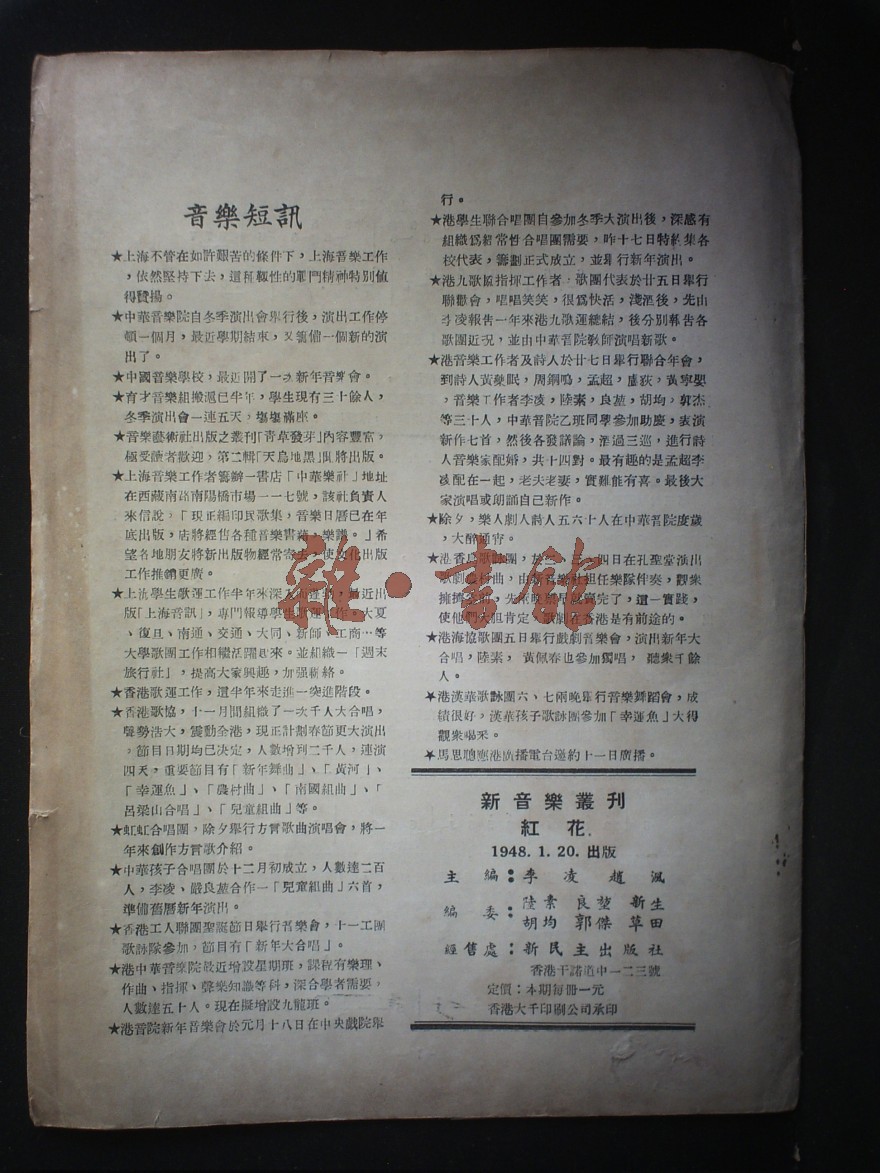 音樂短訊
★上海不管在如許艱苦的條件下，上海音樂工作
，依然堅持下去，這種韌性的鬥門精神特別値
得贊揚。
★中華音樂院自冬季演出會舉行後，演出工作停
頓一個月，最近學期結束，又籌備一個新的演
出了。
★中國音樂學校，最近開了一次新年音樂會。
★育才音樂組搬滬已半年，學生現有三十餘人，
冬季演出會一連五天，塲塲滿座。
★音樂藝術社出版之叢刊「靑草發芽」內容豐富，
極受讀者歡迎，第二輯「天烏地黑」卽將出版。
★上海音樂工作者籌辦一書店「中華樂社」地址
在西藏南路南陽橋市場一一七號，該社負責人
來信說，「現正編印民歌集，音樂日曆已在年
底出版，店將經售各種音樂書籍、樂譜。」希
望各地朋友將新出版物經常寄去，使文化出版
工作推銷更廣。
★上海學生歌運工作半年來深入 ，最近出
版「上海音訊」，專門報導學生歌運工作。大夏
、復旦、南通、交通、大同、新師、工商…等
大學歌團工作和 活躍起來。並組織「週末
旅行社」，提高大家興趣，加强聯絡。
★香港歌運工作，這半年來走進一突進階段。
★香港歌協，十一月間組織了一次千人大合唱，
聲勢浩大，震動全港，現正計劃春節更大演出
，節目日期均已决定，人數增到二千人，連演
四天，重要節目有「新年舞曲」、「黃河」、
「幸運魚」、「農村曲」、「南國組曲」、「
呂梁山合唱」、「兒童組曲」等。
★虹虹合唱團，除夕舉行方言歌曲演唱會，將一
年來創作方言歌介紹。
★中華孩子合唱團於十二月初成立，人數達二百
人，李凌、嚴良堃合作一「兒童組曲」六首，
準備舊曆新年演出。
★香港工人聯團聖誕節日舉行音樂會，十一工團
歌詠隊參加，節目有「新年大合唱」。
★港中華音樂院最近增設星期班，課程有樂理、
作曲、指揮、聲樂知識等科，深合學者需要，
人數達五十人。現在擬增設九龍班。
★港音院新年音樂會於元月十八日在中央戲院舉
行。
★港學生聯合唱團自參加冬季大演出後，深感有
組織爲經常性合唱團需要，昨十七日特約集各
校代表，籌劃正式成立，並舉行新年演出。
★港九歌協指揮工作者、歌團代表於廿五日舉行
聯歡會，唱唱笑笑，很爲快活，淺酒後，先由
李凌報告一年來港九歌運總結，後分別報告各
歌團近況，並由中華音院敎師演唱新歌。
★港音樂工作者及詩人於廿七日舉行聯合年會，
到詩人黃藥眠，周鋼鳴，孟超，盧荻，黃寧嬰
，音樂工作者李凌，陸素，良堃，胡均，郭杰
等三十人，中華音院乙班同學參加助慶，表演
新作七首，然後各發議論，酒過三巡，進行詩
人音樂家配婚，共十四對。最有趣的是孟超李
凌配在一起，老夫老妻，實難能有喜。最後大
家演唱或朗誦自己新作。
★除夕，樂人劇人詩人五六十人在中華音院度歲
，大醉通宵。
★港香島歌詠團，於 三、四日在孔聖堂演出
歌劇農村曲，由新音樂社担任樂隊伴奏，觀衆
擁擠 ， 完了，這一實踐，
使他們大胆肯定，歌劇在香港是有前途的。
★港海協歌團五日舉行戲劇音樂會，演出新年大
合唱，陸素，黃佩春也參加獨唱，聽衆千餘
人。
★港漢華歌詠團六、七兩晚舉行音樂舞蹈會，成
績很好，漢華孩子歌詠團參加「幸運魚」大得
觀衆喝釆。
★馬思聰應港廣播電台邀約十一日廣播。
新音樂叢刊
紅花.
1948.1.20.出版
主編：李凌 趙渢
編委：陸素 良堃 新生
胡均 郭傑 草田
經售處：新民主出版社
香港干諾道中一二三號
定價：本期每冊一元
香港大千印刷公司承印
雜·書館